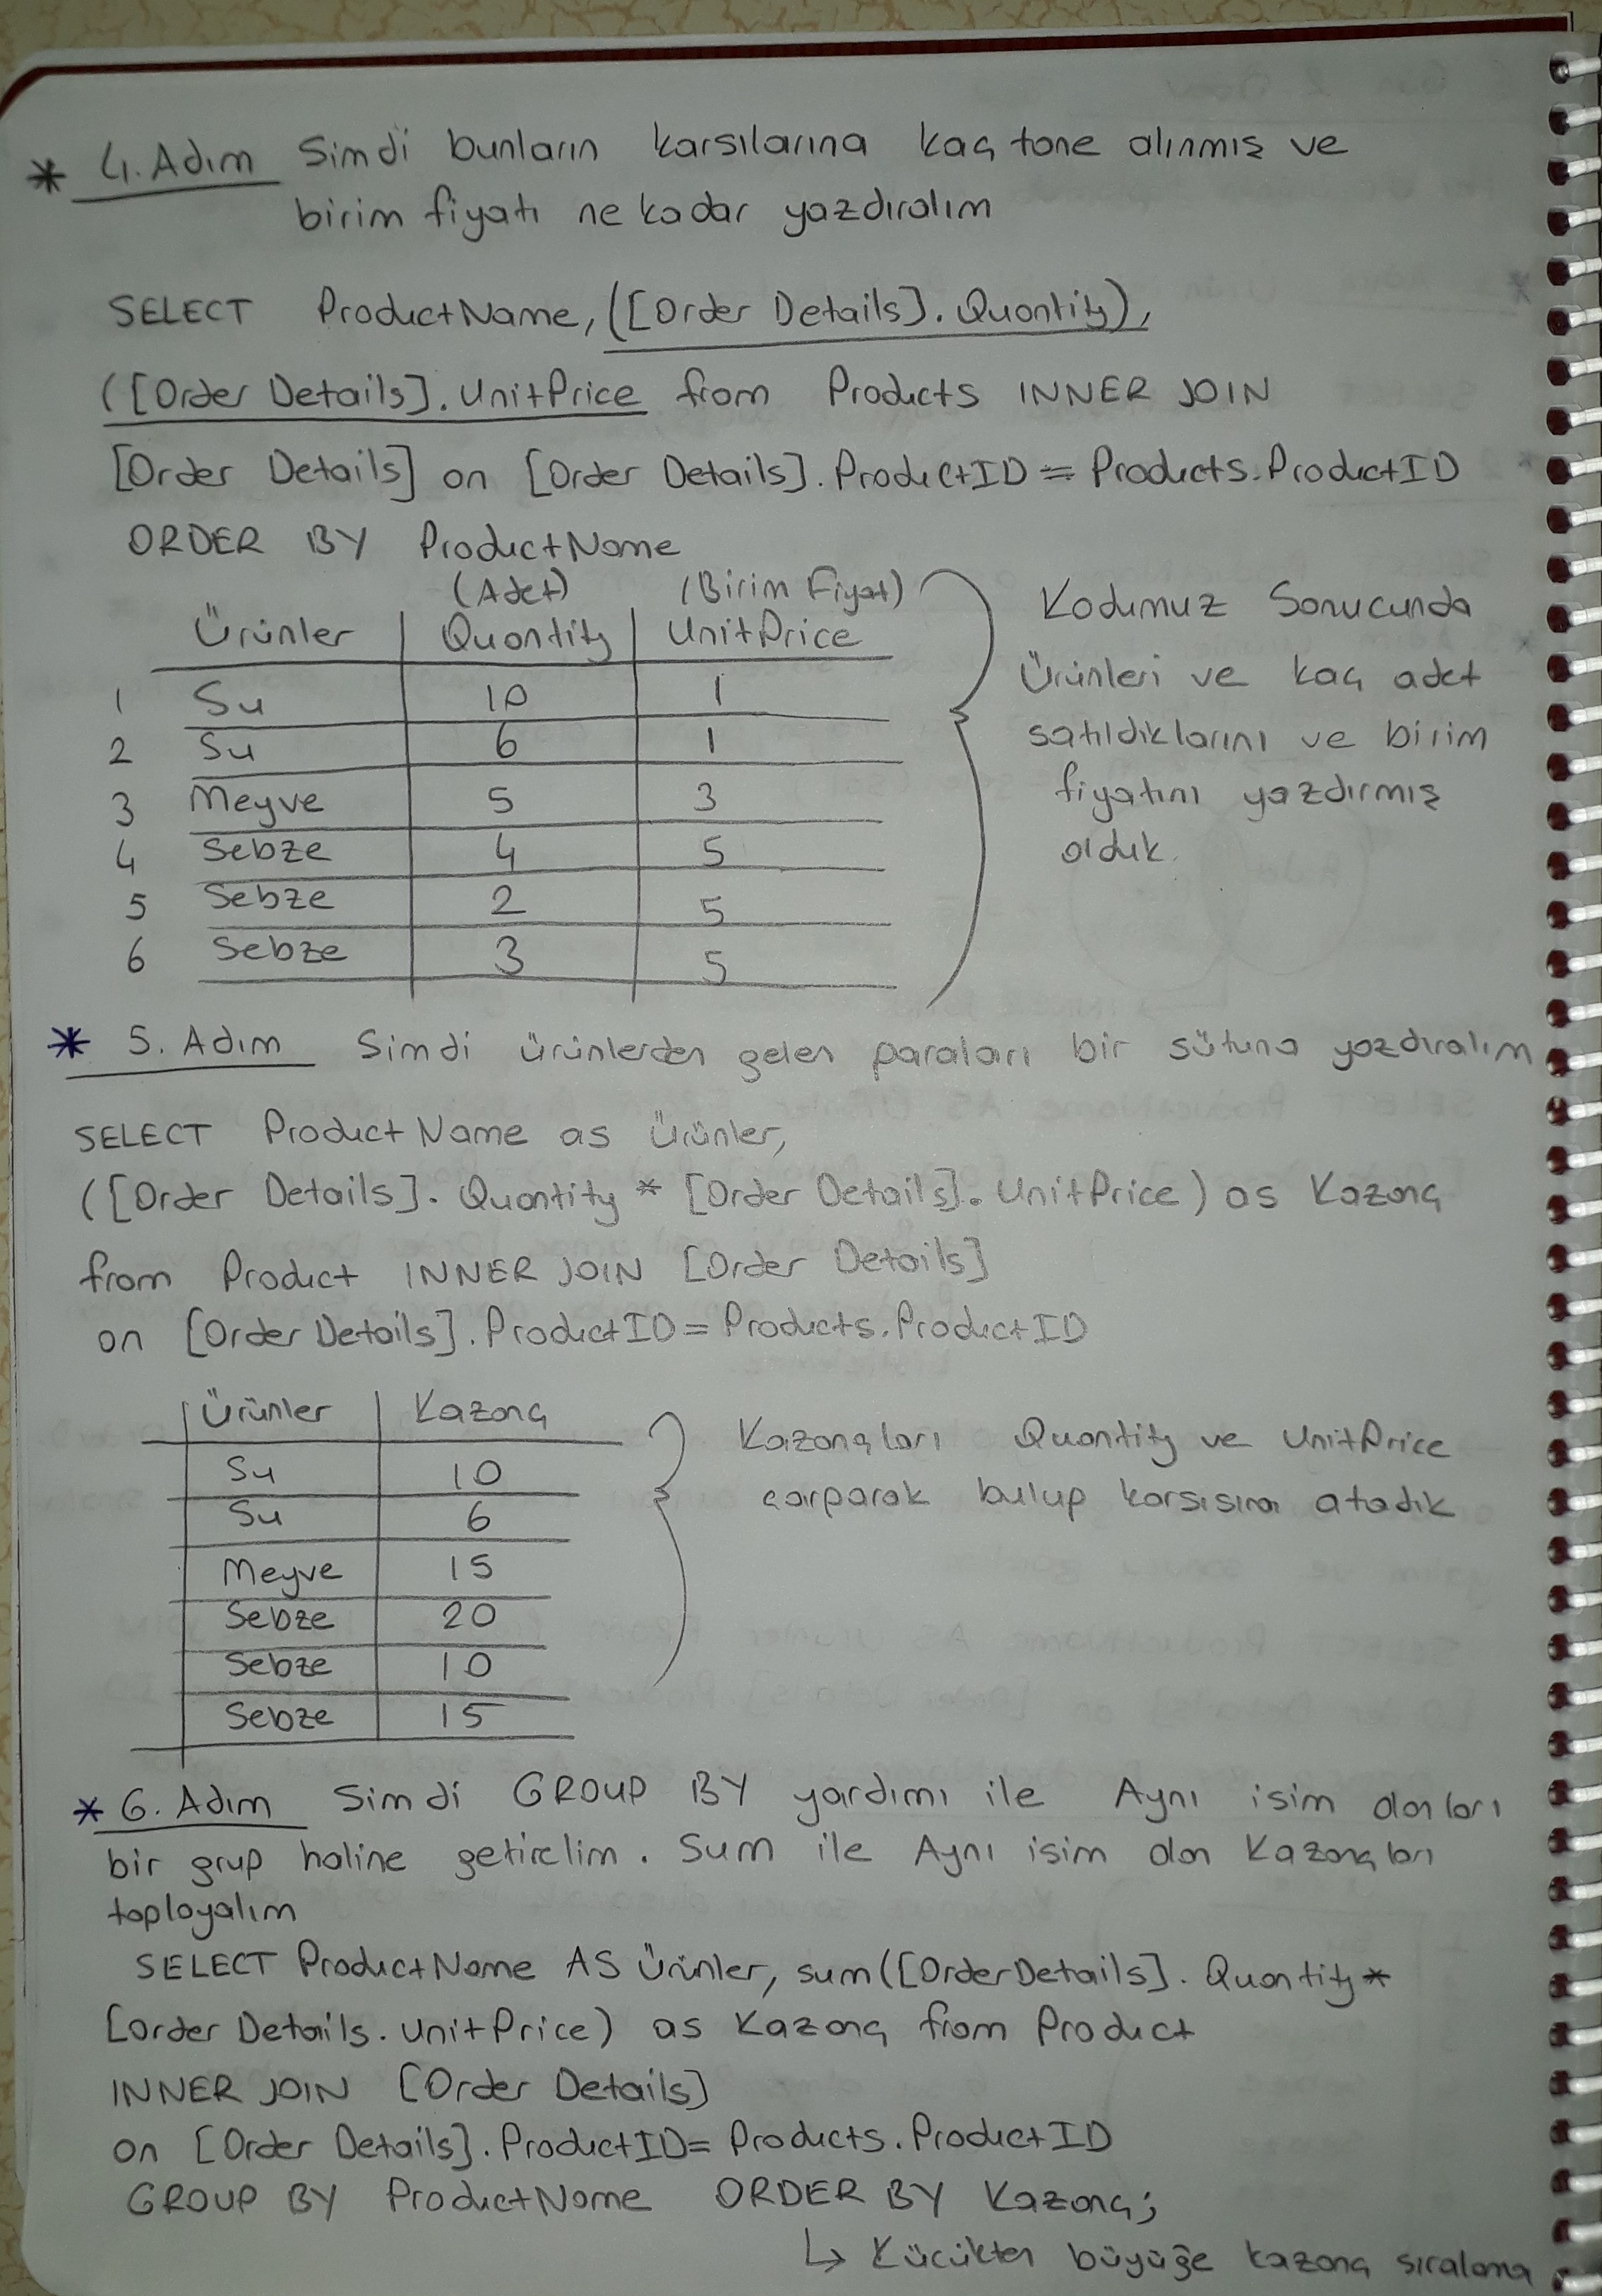 * 4. Adım Simdi bunların karsılarına kaç tane alınmış ve
birim fiyatı ne kadar yazdıralım
SELECT ProductName, ([Order Details]. Quantity),
([Order Details]. UnitPrice from Products INNER JOIN
[Order Details] on [Order Details]. ProductID = Products. ProductID
ORDER BY ProductName
(Adet) (Birim Fiyat)
Ürünler Quantity UnitPrice
1 Su 10 1
2 Su 6 1
3 Meyve 5 3
4 Sebze 4 5
5 Sebze 2 5
6 Sebze 3 5
Kodumuz Sonucunda
Ürünleri ve kaç adet
satıldıklarını ve birim
fiyatını yazdırmış
olduk.
* 5. Adım Simdi ürünlerden gelen paraları bir sütuna yazdıralım
SELECT ProductName as Ürünler,
([Order Details]. Quantity * [Order Details]. UnitPrice) as Kazanç
from Product INNER JOIN [Order Details]
on [Order Details]. ProductID = Products. ProductID
Ürünler Kazanç
Su 10
Su 6
Meyve 15
Sebze 20
Sebze 10
Sebze 15
Kazançları Quantity ve UnitPrice
çarparak bulup karsısına atadık
* 6. Adım Simdi GROUP BY yardımı ile Aynı isim olanları
bir grup haline getirelim. Sum ile Aynı isim olan Kazançları
toplayalım
SELECT ProductName AS Ürünler, sum([OrderDetails]. Quantity *
[Order Details. UnitPrice) as Kazanç from Product
INNER JOIN [Order Details]
on [Order Details]. ProductID = Products. ProductID
GROUP BY ProductName ORDER BY Kazanç;
↳ Kücükten büyüğe kazanç sıralama